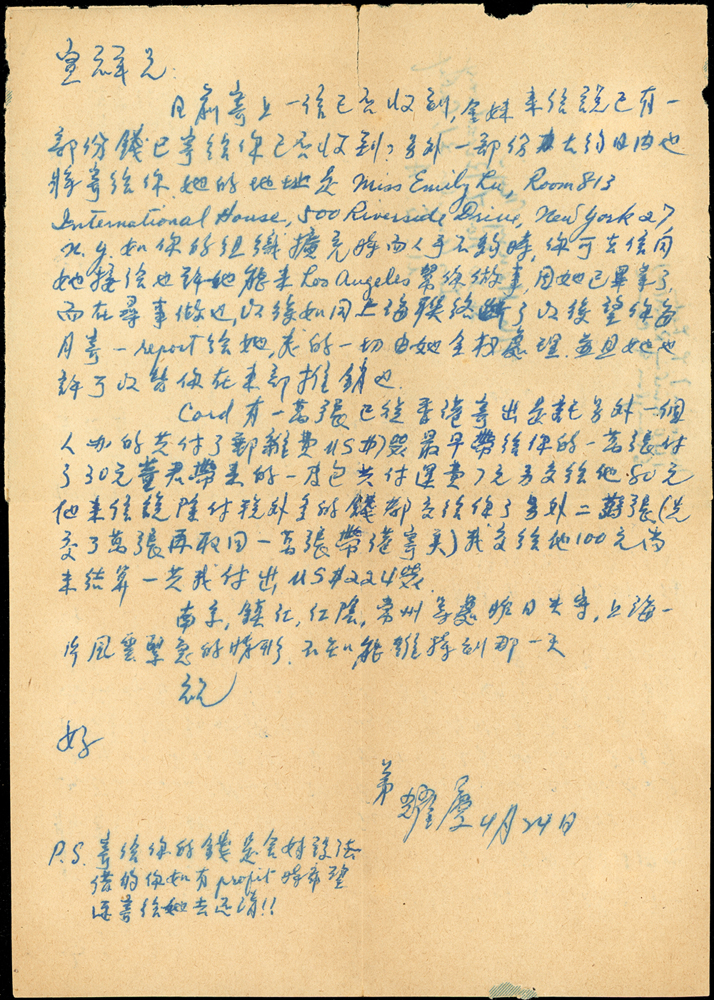 宣祥兄
日前寄上一信已否收到,金妹来信説已有一
部份錢已寄給你已否收到?另外一部份大约日内也
將寄給你.她的地址是 Miss Emily Lu, Room 813
International House, 500 Riverside Drive, New York 27
N.Y. 如你的组織擴充時而人手不夠時,你可去信问
她接给也許她能来 Los Angeles 幫你做事因她已畢業了
而在尋事做也,以後如同上海联络断了以後望你每
月寄一 report 给她,我的一切由她全权處理.並且她也
許可以替你在东部推銷也.
Card 有一萬張已從香港寄出是託另外一個
人办的共付了郵雜費US$ 最早帶给你的一萬張付
了30元 君帶来的一皮包共付運費7元另交给他50元
他来信説除付税外多的錢都交给你了另外二萬張(先
交了萬張再取回一萬張帶港寄美)我交给他100元尚
未结算一共我付出US$224
南京,鎮江,江陰,常州等處昨日失守,上海一
片風雲緊急的情形.不知能維持到那一天
祝
好
弟 耀慶 4月24日
P.S. 寄给你的錢是金妹設法
借的你如有 profit 時希望
还寄给她去还清!!